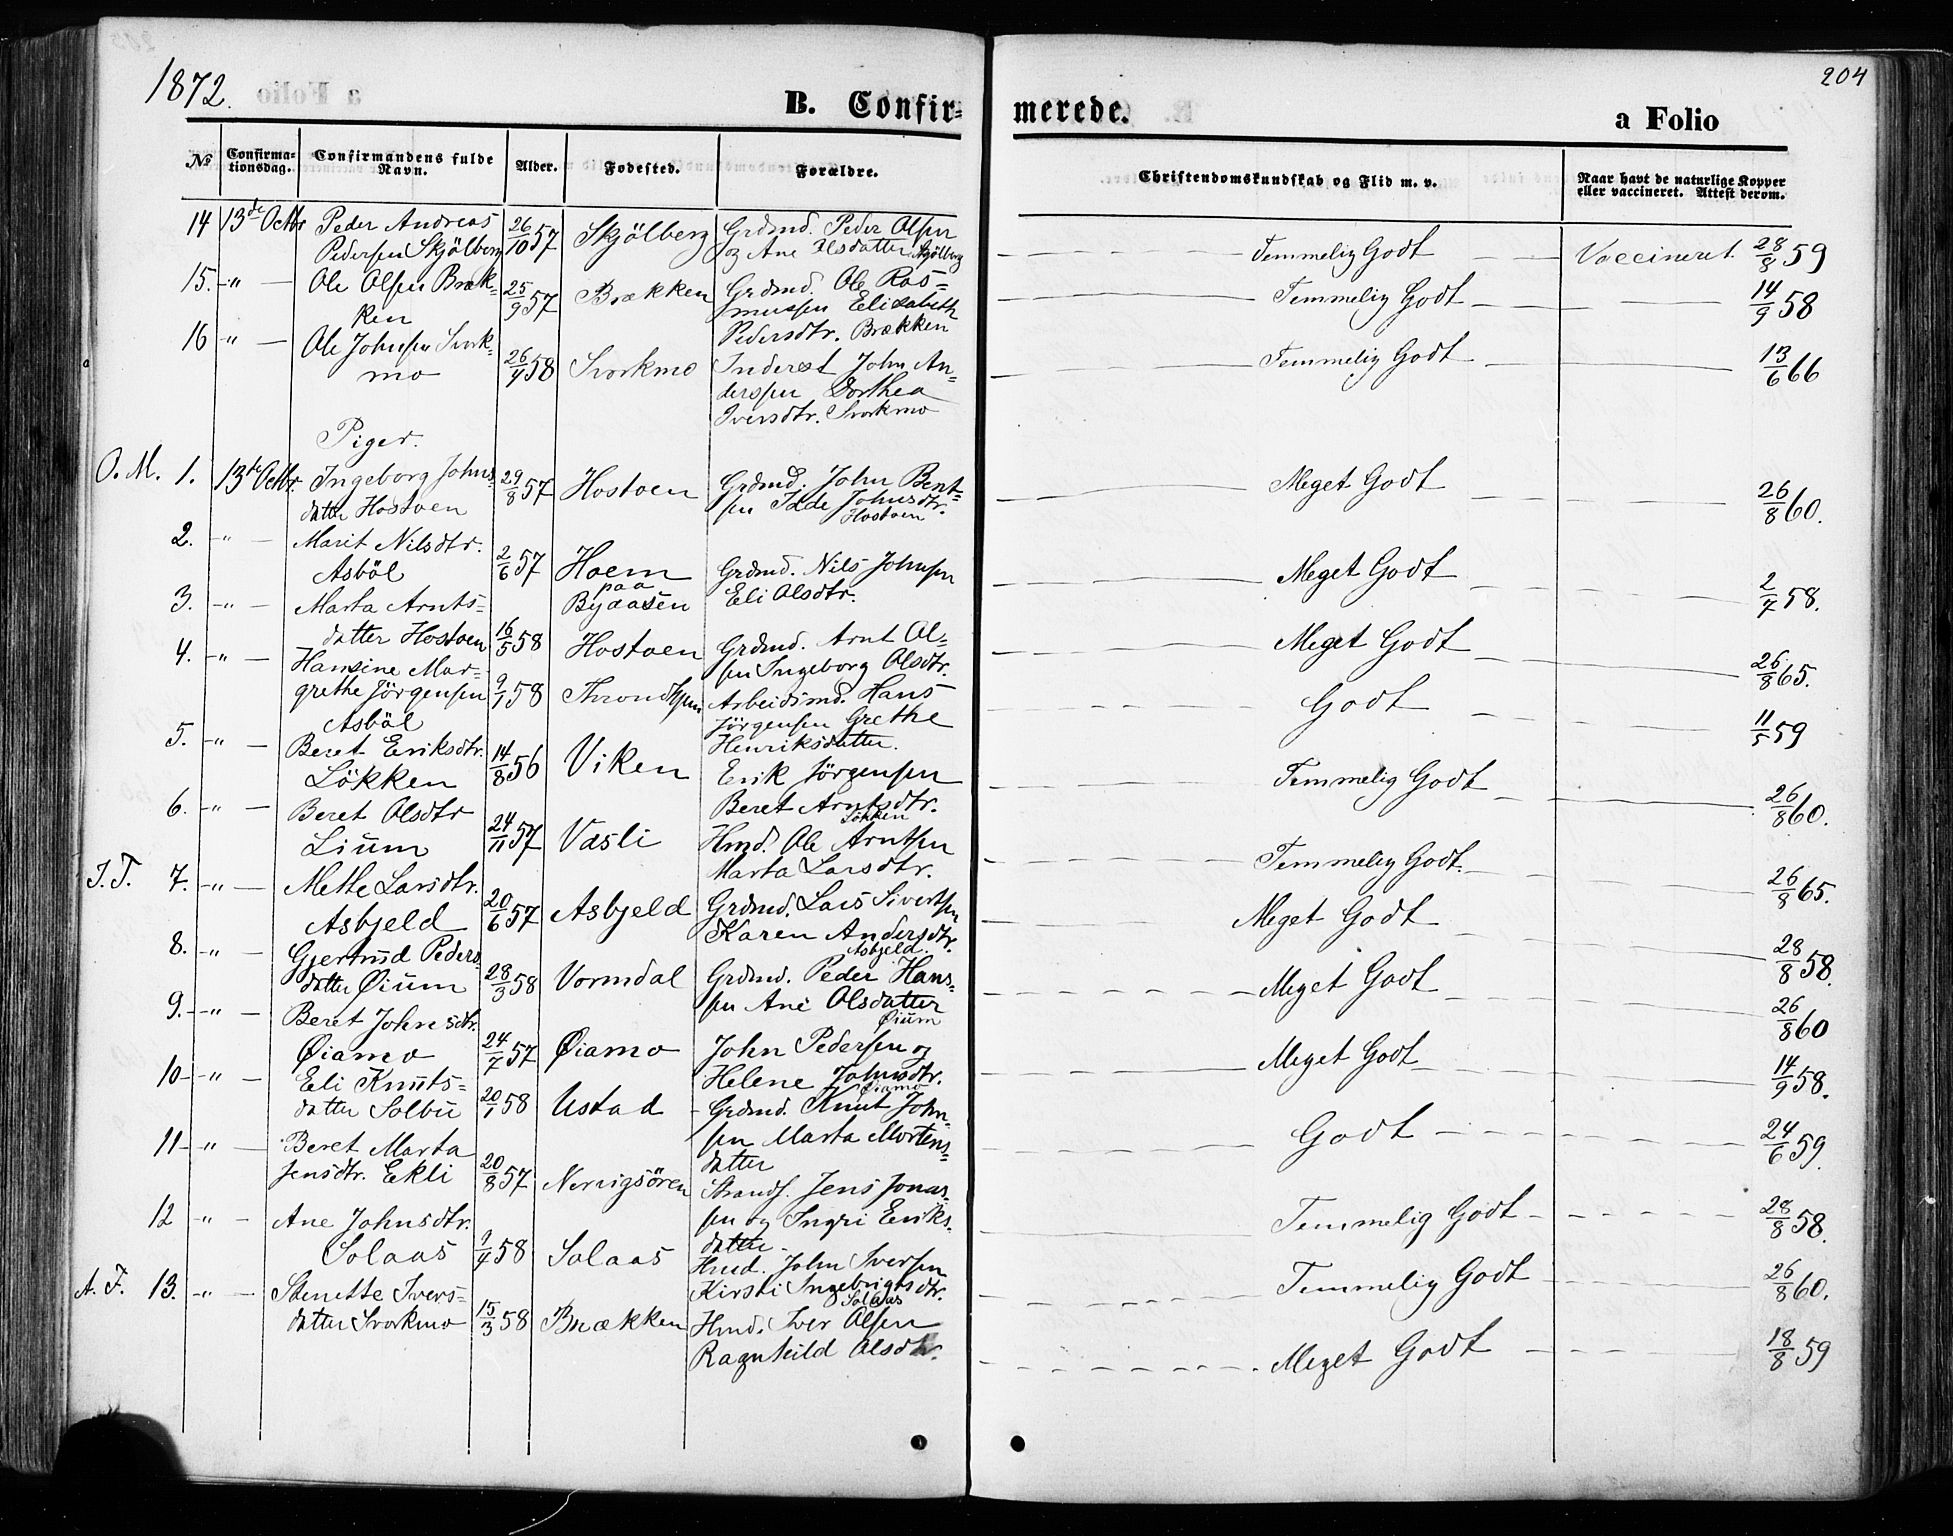 1872.
204
B. Confir-
merede.
a Folio
No
Confirma-
tionsdag.
Confirmandens fulde
Navn.
Alder.
Fødested.
Forældre.
Christendomskundskab og Flid m. v.
Naar havt de naturlige Kopper
eller vaccineret. Attest derom.
14 13de Octbr Peder Andreas 26/10 57 Skjölberg Grdmd. Peder Olsen
Pedersen Skjölberg og Ane Olsdatter Skjölberg
Temmelig Godt Vaccineret. 28/8 59
15. -"- Ole Olsen Bræk- 25/9 57 Brækken Grdmd. Ole Ras-
ken mussen Elisabeth
Pedersdtr. Brækken
Temmelig Godt 14/9 58
16 " Ole Johnsen Svork- 26/4 58 Svorkmo Inderst John An-
mo dersen Dorthea
Iversdtr. Svorkmo
Temmelig Godt 13/6 66
Piger.
O. M. 1. 13de Octbr. Ingeborg Johns- 29/8 57 Hostoen Grdmd. John Bent-
datter Hostoen sen Johnsdtr.
Hostoen
Meget Godt 26/8 60.
2. -"- Marit Nilsdtr. 2/6 57 Hoem Grdmd. Nils Johnsen
Asböl paa Eli Olsdtr.
Byaasen
Meget Godt 2/7 58.
3. -"- Marta Arnts-
datter Hostoen 16/5 58 Hostoen Grdmd. Arnt Ol-
sen Ingeborg Olsdtr.
Meget Godt 26/8 65.
4. -"- Hansine Mar-
grethe Jörgensen 9/1 58 Throndhjem Arbeidsmd. Hans
Asböl Jörgensen Grethe
Henriksdatter.
Godt 11/5 59
5. -"- Beret Eriksdtr. 14/8 56 Viken Erik Jörgensen
Lökken Beret Arntsdtr.
Lökken
Temmelig Godt 26/8 60.
6. -"- Beret Olsdtr 24/11 57 Vasli Hmd. Ole Arntsen
Lium Marta Larsdtr.
Temmelig Godt. 26/8 65.
I. T. 7. -"- Mette Larsdtr. 20/6 57 Asbjeld Grdmd. Lars Sivertsen
Asbjeld Karen Andersdtr.
Asbjeld.
Meget Godt 28/8 58.
8. -"- Gjertrud Peders-
datter Øium 28/3 58 Vormdal Grdmd. Peder Hans-
sen Ane Olsdatter
Øium
Meget Godt 26/8 60
9. -"- Beret Johnsdtr.
Øiamo 24/7 57 Øiamo John Pedersen og
Helene Johnsdtr.
Øiamo
Meget Godt 14/9 58.
10 -"- Eli Knuts-
datter Solbu 20/1 58 Ustad Grdmd. Knut John-
sen Marta Mortens-
datter
Godt 24/6 59.
11 -"- Beret Marta
Jensdtr. Ekli 20/8 57 Strandf. Jens Jonas-
sen og Ingri Eriks-
datter
Temmelig Godt 28/8 58.
12 -"- Ane Johnsdtr.
Solaas 9/4 58 Solaas Hmd. John Iversen
Kirsti Ingebrigtsdtr.
Solaas
Temmelig Godt 26/8 60.
A. F. 13. -"- Stenette Ivers-
datter Svorkmo 15/3 58 Brækken Hmd. Iver Olsen
Ragnhild Olsdtr.
Meget Godt 18/8 59